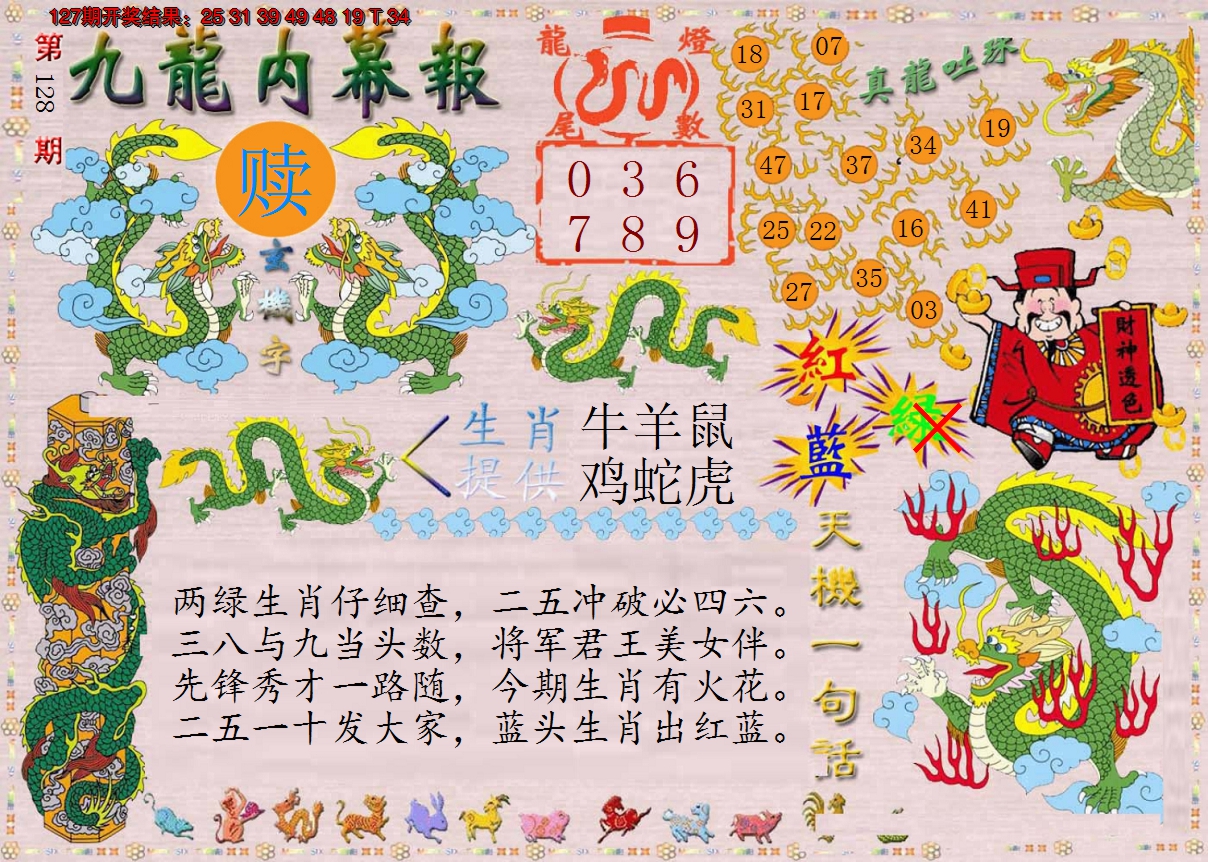 127期开奖结果：25 31 39 49 48 19 T 34
第128期
九龍内幕報
赎
玄機字
龍燈尾數
0 3 6
7 8 9
真龍吐珠
18 07
31 17
47 37 34 19
25 22 16 41
27 35 03
財神透色
紅
綠
藍
生肖 牛羊鼠
提供 鸡蛇虎
天機一句話
两绿生肖仔细查，二五冲破必四六。
三八与九当头数，将军君王美女伴。
先锋秀才一路随，今期生肖有火花。
二五一十发大家，蓝头生肖出红蓝。